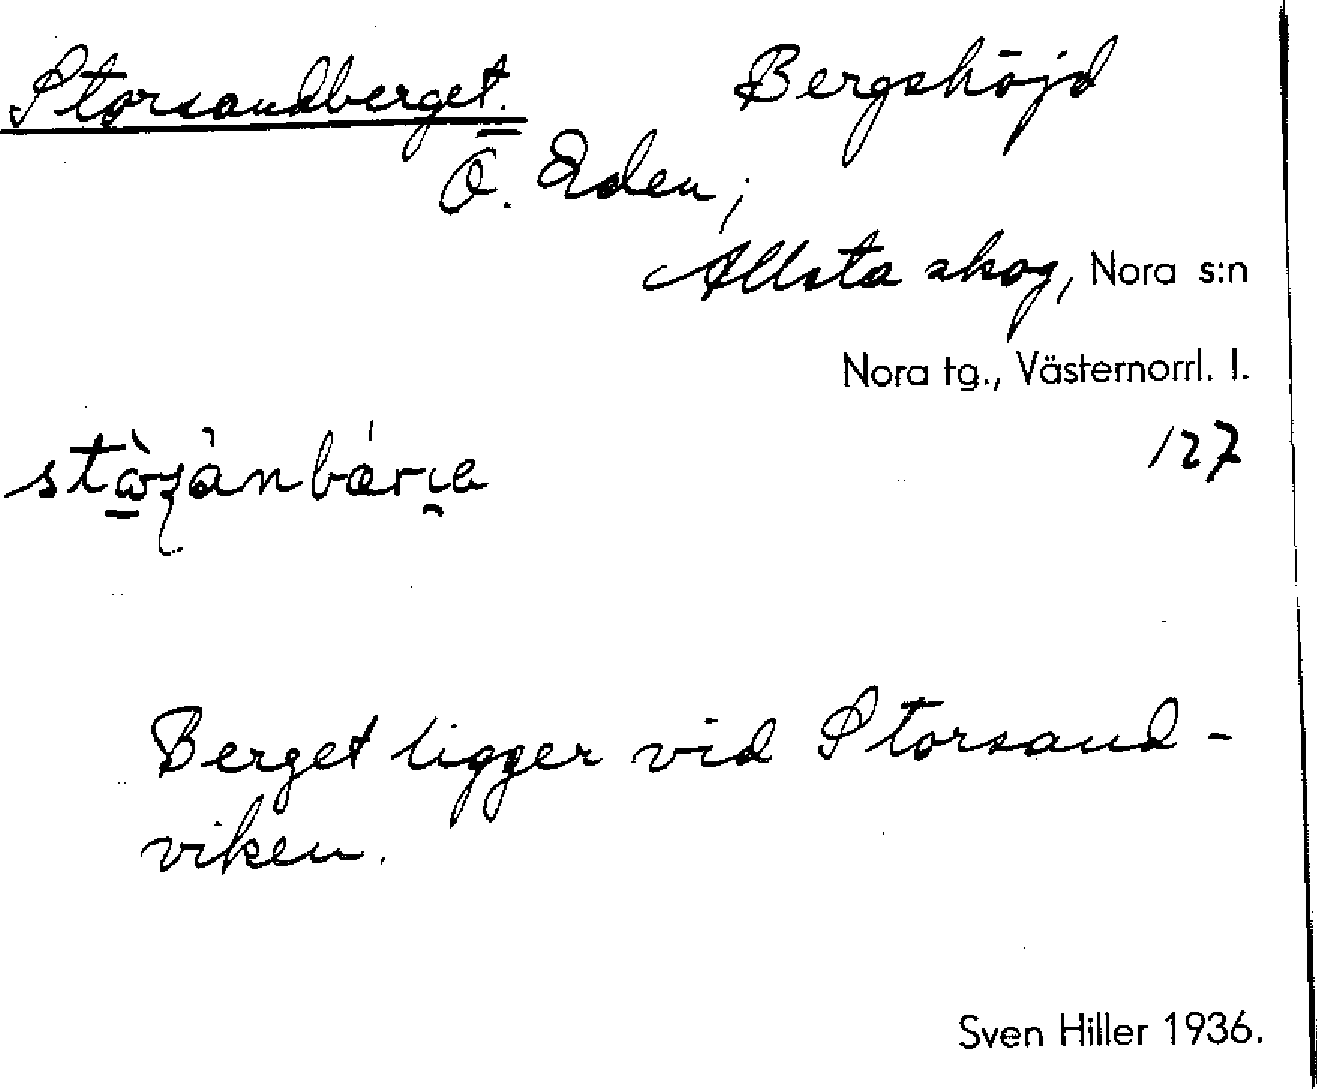 Storsandberget. Bergshöjd
Ö. Eden;
Allsta skog, Nora s:n
Nora tg., Västernorrl. l.
127
Berget ligger vid Storsand-
viken.
Sven Hiller 1936.